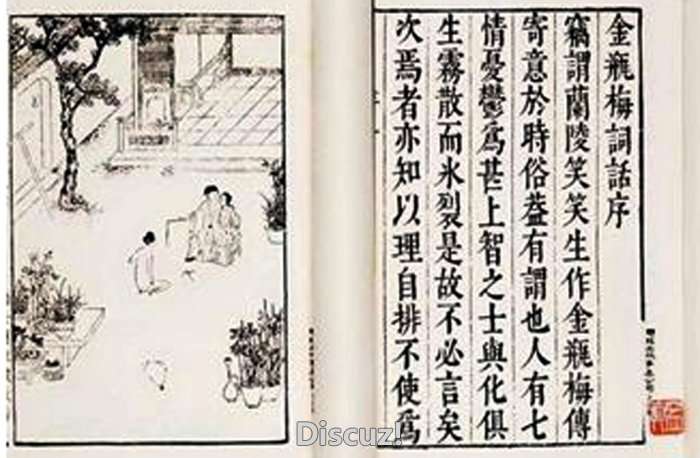 金瓶梅詞話序
竊謂蘭陵笑笑生作金瓶梅傳
寄意於時俗葢有謂也人有七
情憂鬱爲甚上智之士與化俱
生霧散而氷裂是故不必言矣
次焉者亦知以理自排不使爲
Discuz!